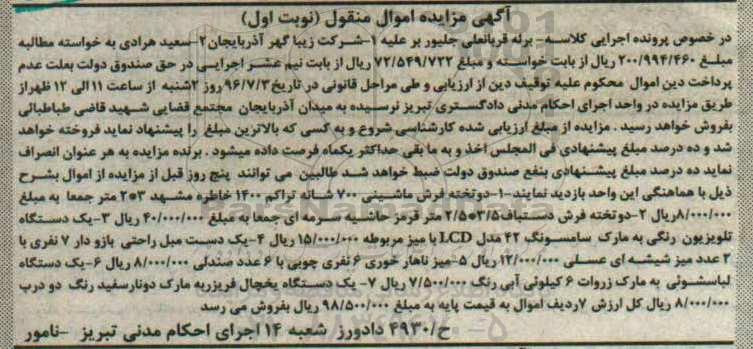 آگهی مزایده اموال منقول (نوبت اول)
در خصوص پرونده اجرایی کلاسه- برله قربانعلی جلیور بر علیه ۱-شرکت زیبا گهر آذربایجان۲-سعید هرادی به خواسته مطالبه
مبلغ ۲۰۰/۹۹۴/۴۶۰ ریال از بابت خواسته و مبلغ ۷۲/۵۴۹/۷۲۲ ریال از بابت نیم عشر اجرایی در حق صندوق دولت بعلت عدم
پرداخت دین اموال محکوم علیه توقیف دین از ارزیابی و طی مراحل قانونی در تاریخ ۹۶/۷/۳ روز ۲شنبه از ساعت ۱۱ الی ۱۲ ظهر از
طریق مزایده در واحد اجرای احکام مدنی دادگستری تبریز نرسیده به میدان آذربایجان مجتمع قضایی شهید قاضی طباطبائی
بفروش خواهد رسید . مزایده از مبلغ ارزیابی شده کارشناسی شروع و به کسی که بالاترین مبلغ را پیشنهاد نماید فروخته خواهد
شد و ده درصد مبلغ پیشنهادی فی المجلس اخذ و به ما بقی حداکثر یکماه فرصت داده میشود . برنده مزایده به هر عنوان انصراف
نماید ده درصد مبلغ پیشنهادی بنفع صندوق دولت ضبط خواهد شد طالبین می توانند پنج روز قبل از مزایده از اموال بشرح
ذیل با هماهنگی این واحد بازدید نمایند-۱-دوتخته فرش ماشینی ۷۰۰ شانه تراکم ۱۴۰۰ خاطره مشهد ۳*۲ متر جمعا به مبلغ
۸/۰۰۰/۰۰۰ریال ۲-دوتخته فرش دستباف۳/۵*۲/۵ متر قرمز حاشیه سرمه ای جمعا به مبلغ ۴۰/۰۰۰/۰۰۰ ریال ۳-یک دستگاه
تلویزیون رنگی به مارک سامسونگ ۴۲ مدل LCD با میز مربوطه ۱۵/۰۰۰/۰۰۰ ریال ۴-یک دست مبل راحتی بازو دار ۷ نفری با
۲ عدد میز شیشه ای عسلی ۱۲/۰۰۰/۰۰۰ ریال ۵-میز ناهار خوری ۶ نفری چوبی با ۶ عدد صندلی ۸/۰۰۰/۰۰۰ ریال ۶-یک دستگاه
لباسشوئی به مارک زروات ۶ کیلوئی آبی رنگ ۷/۵۰۰/۰۰۰ ریال ۷- یک دستگاه یخچال فریزربه مارک دونارسفید رنگ دو درب
۸/۰۰۰/۰۰۰ ریال کل ارزش ۷ردیف اموال به قیمت پایه به مبلغ ۹۸/۵۰۰/۰۰۰ ریال بفروش می رسد
ح/۴۹۳۰ دادورز شعبه ۱۴ اجرای احکام مدنی تبریز -نامور